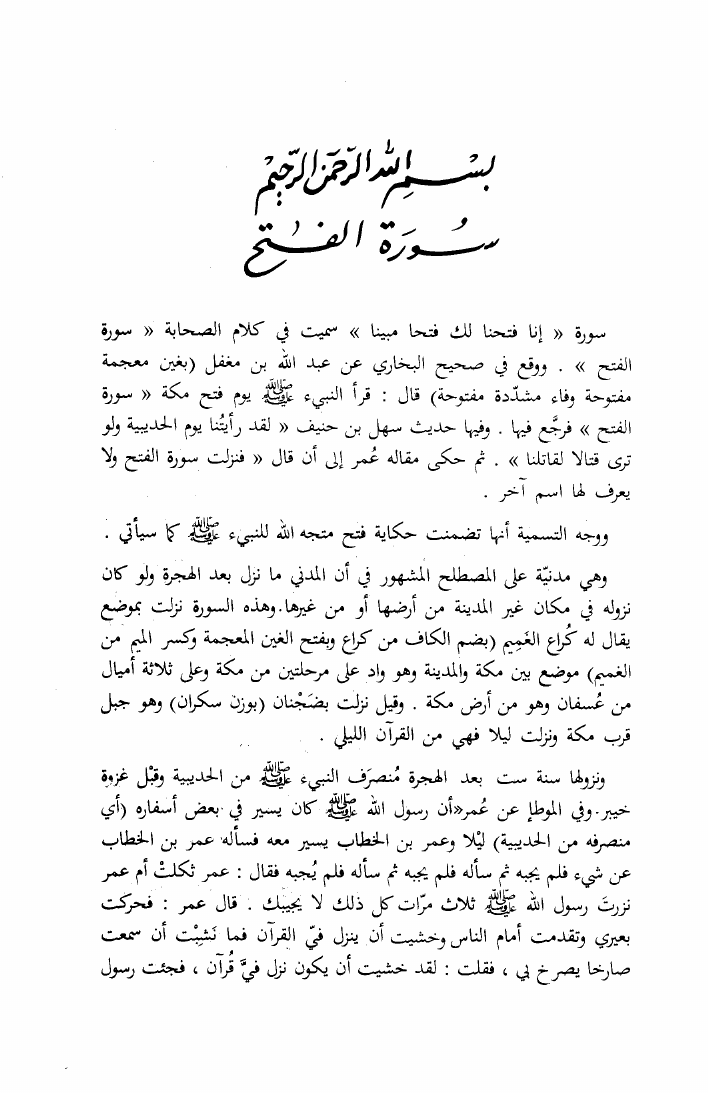 بسم الله الرحمن الرحيم
سورة الفتح
سورة « إنا فتحنا لك فتحا مبينا » سميت في كلام الصحابة « سورة
الفتح » . ووقع في صحيح البخاري عن عبد الله بن مغفل (بغين معجمة
مفتوحة وفاء مشدّدة مفتوحة) قال : قرأ النبيء ﷺ يوم فتح مكة « سورة
الفتح » فرجَّع فيها . وفيها حديث سهل بن حنيف « لقد رأيتُنا يوم الحديبية ولو
ترى قتالا لقاتلنا » . ثم حكى مقاله عُمر إلى أن قال « فنزلت سورة الفتح ولا
يعرف لها اسم آخر .
ووجه التسمية أنها تضمنت حكاية فتح متجه الله للنبيء ﷺ كما سيأتي .
وهي مدنيّة على المصطلح المشهور في أن المدني ما نزل بعد الهجرة ولو كان
نزوله في مكان غير المدينة من أرضها أو من غيرها. وهذه السورة نزلت بموضع
يقال له كُراع الغَمِيم (بضم الكاف من كراع وبفتح الغين المعجمة وكسر الميم من
الغميم) موضع بين مكة والمدينة وهو واد على مرحلتين من مكة وعلى ثلاثة أميال
من عُسفان وهو من أرض مكة . وقيل نزلت بضَجْنان (بوزن سكران) وهو جبل
قرب مكة ونزلت ليلا فهي من القرآن الليلي .
ونزولها سنة ست بعد الهجرة مُنصرَف النبيء ﷺ من الحديبية وقبْل غزوة
خيبر. وفي الموطإ عن عُمر «أن رسول الله ﷺ كان يسير في بعض أسفاره (أي
منصرفه من الحديبية) ليْلا وعمر بن الخطاب يسير معه فسأله عمر بن الخطاب
عن شيء فلم يجبه ثم سأله فلم يجبه ثم سأله فلم يُجبه فقال : عمر ثكلتْ أم عمر
نزرتَ رسول الله ﷺ ثلاث مرّات كل ذلك لا يجيبك . قال عمر : فحركت
بعيري وتقدمت أمام الناس وخشيت أن ينزل فيّ القرآن فما نَشِبْت أن سمعت
صارخا يصرخ بي ، فقلت : لقد خشيت أن يكون نزل فيَّ قُرآن ، فجئت رسول